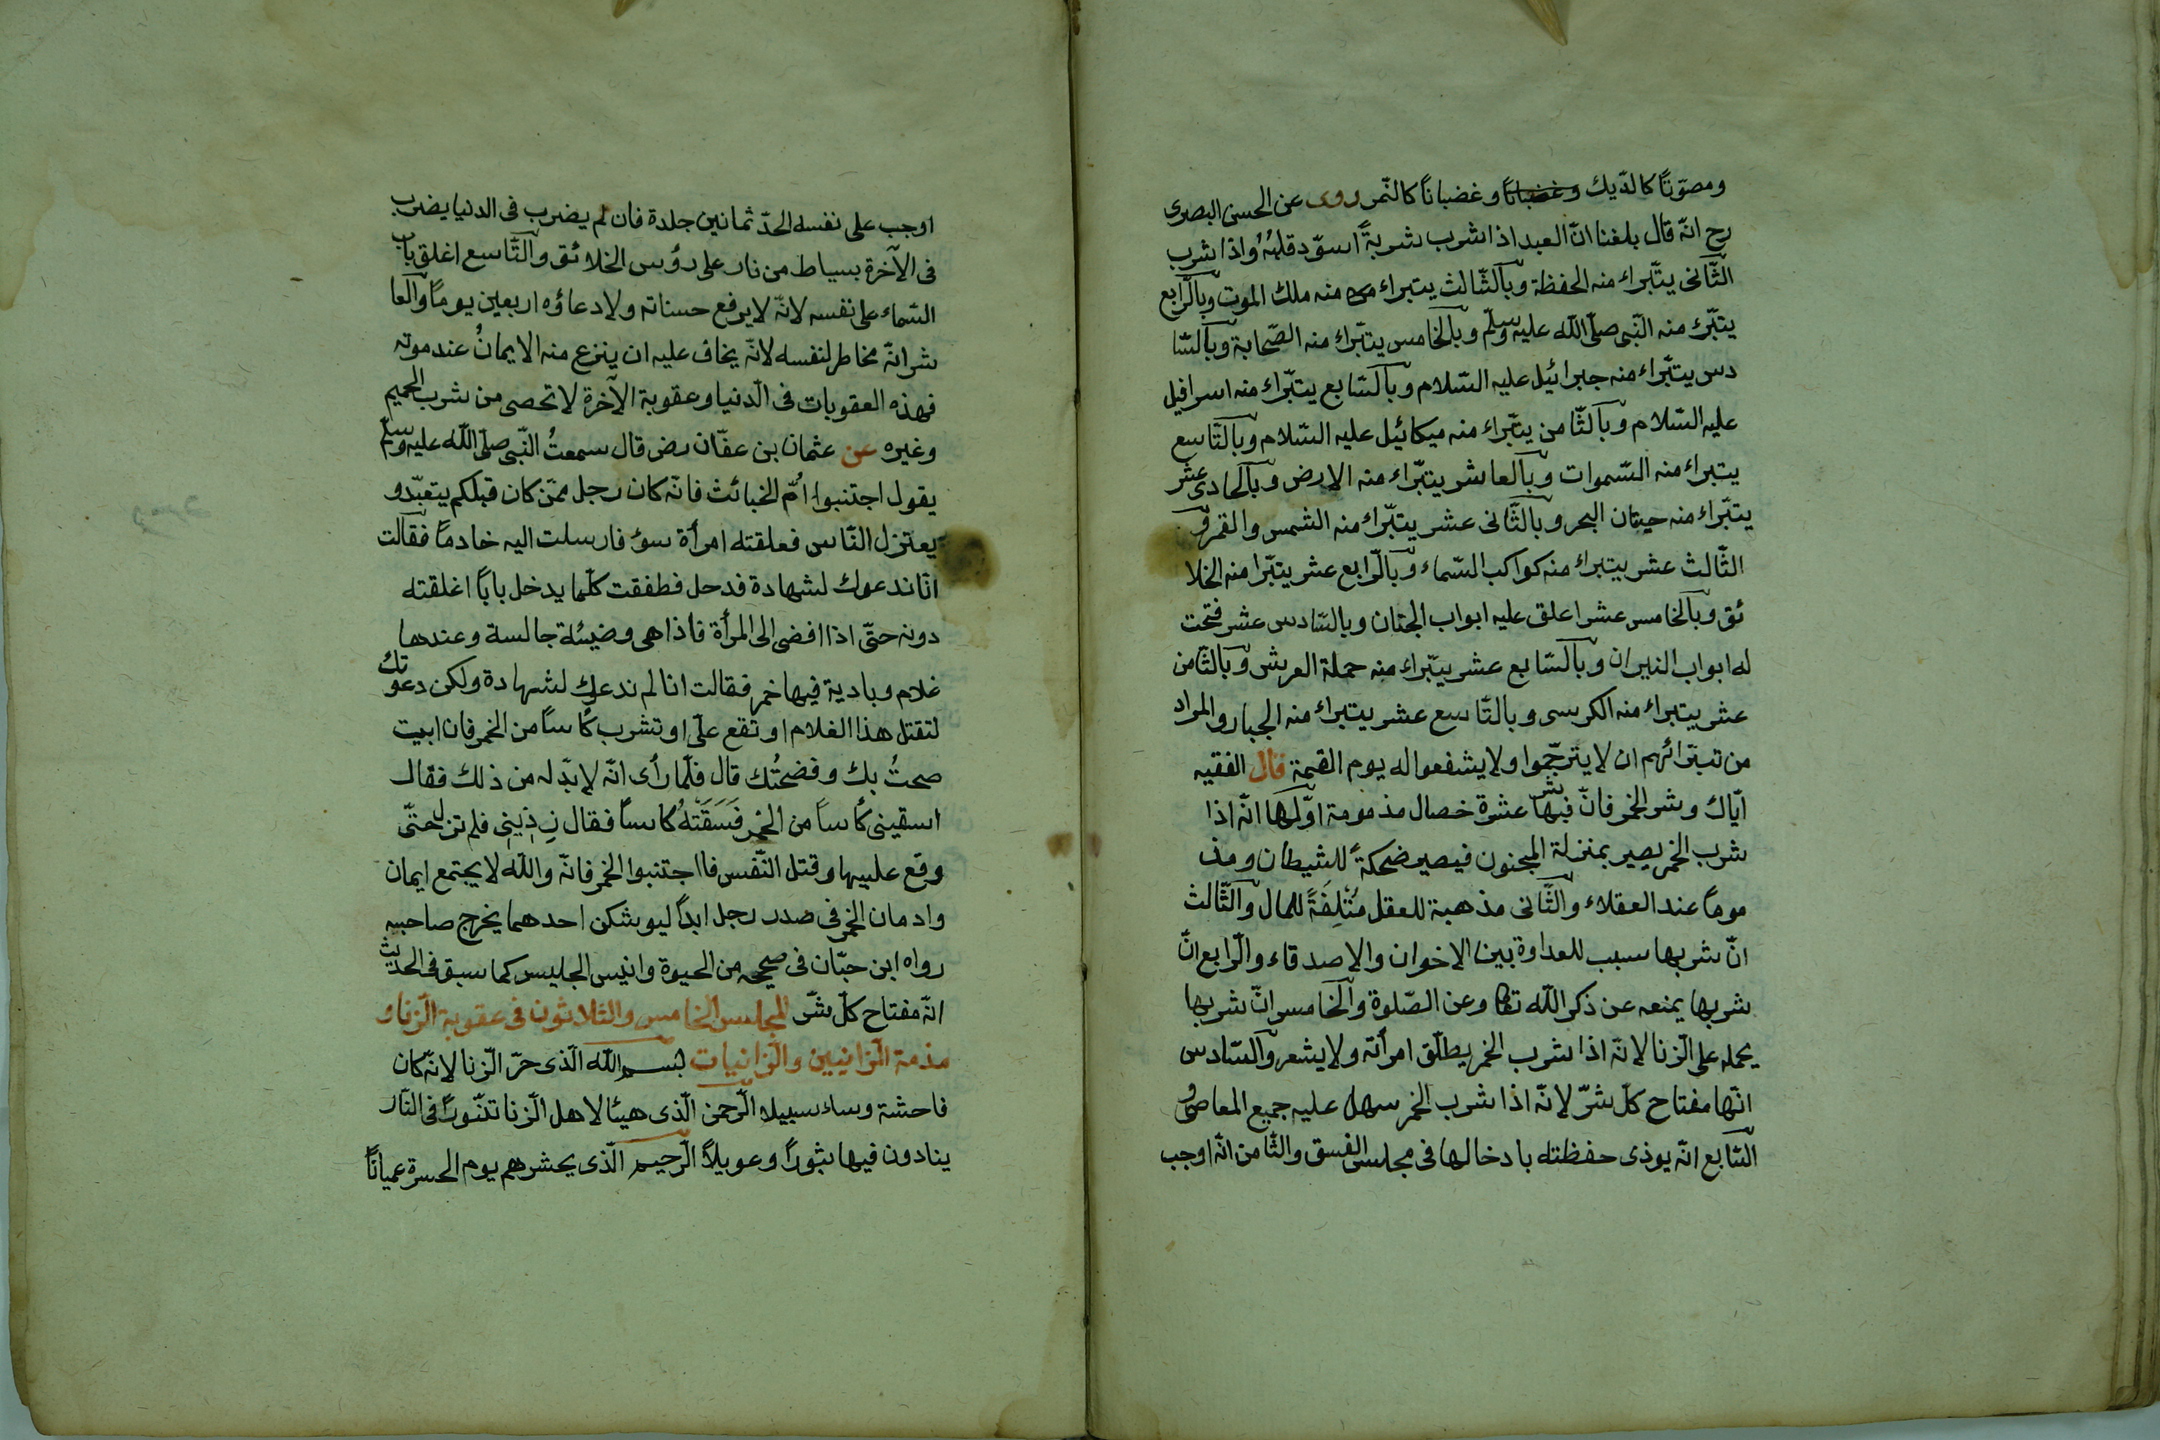 ومصوّتًا كالدّيك وغضبانًا وغضبانًا كالنّمر روى عن الحسن البصرى
رح انّه قال بلغنا انّ العبد اذا شرب شربةً اسوّد قلبُهُ واذا شرب
الثّانى يتّبراء منه الحفظة وبالثّالث يتبراء منه ملك الموت وبالرّابع
يتبّرء منه النّبى صلّى اللّه عليه وسلّم وبالخامس يتبّراء منه الصّحابة وبالسّا
دس يتبّراء منه جبرائيل عليه السّلام وبالسّابع يتبّراء منه اسرافيل
عليه السّلام وبالثّامن يتبّراء منه ميكائيل عليه السّلام وبالتّاسع
يتبراء منه السّموات وبالعاشر يتبّراء منه الارض وبالحادى عشر
يتبّراء منه حيتان البحر وبالثّانى عشر يتبّراء منه الشمس والقمر و
الثّالث عشر يتبراء منه كواكب السّماء وبالرّابع عشر يتبّرا منه الخلا
ئق وبالخامس عشر اغلق عليه ابواب الجنان وبالسّادس عشر فتحت
له ابواب النيران وبالسّابع عشر يتبراء منه حملة العرش وبالثّامن
عشر يتبراء منه الكرسى وبالتّاسع عشر يتبراء منه الجبار والمراد
من تبّرائهم ان لا يترحّموا ولا يشفعوا له يوم القيمة قال الفقيه
ايّاك وشر الخمر فانّ فيها عشرة خصال مذمومة اوّلها انّه اذا
شرب الخمر يصير بمنزلة المجنون فيصير ضحكةً للشيطان ومذ
مومًا عند العقلاء والثّانى مذهبة للعقل مُتْلِفَةً للمال والثّالث
انّ شربها سبب للعداوة بين الاخوان والاصدقاء والرّابع انّ
شربها يمنعه عن ذكر اللّه تعا وعن الصّلوة والخامس انّ شربها
يحمله على الزّنا لانّه اذا شرب الخمر يطلّق امرأته ولا يشعر والسّادس
انّها مفتاح كلّ شرّ لانّه اذا شرب الخمر سهل عليه جميع المعاصى و
السّابع انّه يوذى حفظته بادخالها فى مجلس الفسق والثّامن انّه اوجب
اوجب على نفسه الحدّ ثمانين جلدة فان لم يضرب فى الدنيا يضرب
فى الآخرة بسياط من نار على رؤس الخلائق والتّاسع اغلق باب
السّماء على نفسه لانّه لا يرفع حسناته ولا دعاؤه اربعين يومًا والعا
شر انّه مخاطر لنفسه لانّه يخاف عليه ان ينزع منه الايمانُ عند موته
فهذه العقوبات فى الدّنيا وعقوبة الآخرة لا تحصى من شرب الحميم
وغيره عن عثمان بن عفّان رض قال سمعتُ النّبى صلّى اللّه عليه وسلّم
يقول اجتنبوا امّ الخبائث فانّه كان رجل ممّن كان قبلكم يتعبّد و
يعتزل النّاس فعلقته امرأة سوء فارسلت اليه خادمًا فقالت
انّا ندعوك لشهادة فدحل فطفقت كلّما يدخل بابًا اغلقته
دونه حتّى اذا افضى الى المرأة فاذا هى وضيئة جالسة وعندها
غلام وبادية فيها خمر فقالت انا لم ندعك لشهادة ولكن دعوتك
لتقتل هذا الغلام او تقع علّى او تشرب كأسًا من الخمر فان ابيت
صحتُ بك وفضحتُك قال فلّما رأى انّه لا بدّ له من ذلك فقال
اسقينى كأسًا من الخمر فَسَقَتْهُ كاسًا فقال زيذينى فلم تزل حتّى
وقع عليها وقتل النّفس فااجتنبوا الخمر فانّه واللّه لا يجتمع ايمان
وادمان الخمر فى صدر رجل ابدًا ليوشكن احدهما يخرج صاحبه
رواه ابن حبّان فى صحيحه من الحيوة وانيس الجليس كما سبق فى الحديث
انّه مفتاح كلّ شرّ المجلس الخامس والثلاثون فى عقوبة الزّنا و
مذمة الزّانيين والزّانيات بسم اللّه الّذى حرّ الزّنا لانّه كان
فاحشة وساء سبيلا الرّحمن الّذى هيئا لاهل الزّنا تنّورًا فى النّار
ينادون فيها ثبورًا وعويلاً الرّحيم الّذى يحشرهم يوم الحسرة عميانًا